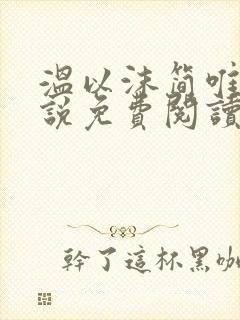 溫以沫簡唯
說免費閱讀
幹了這杯黑咖